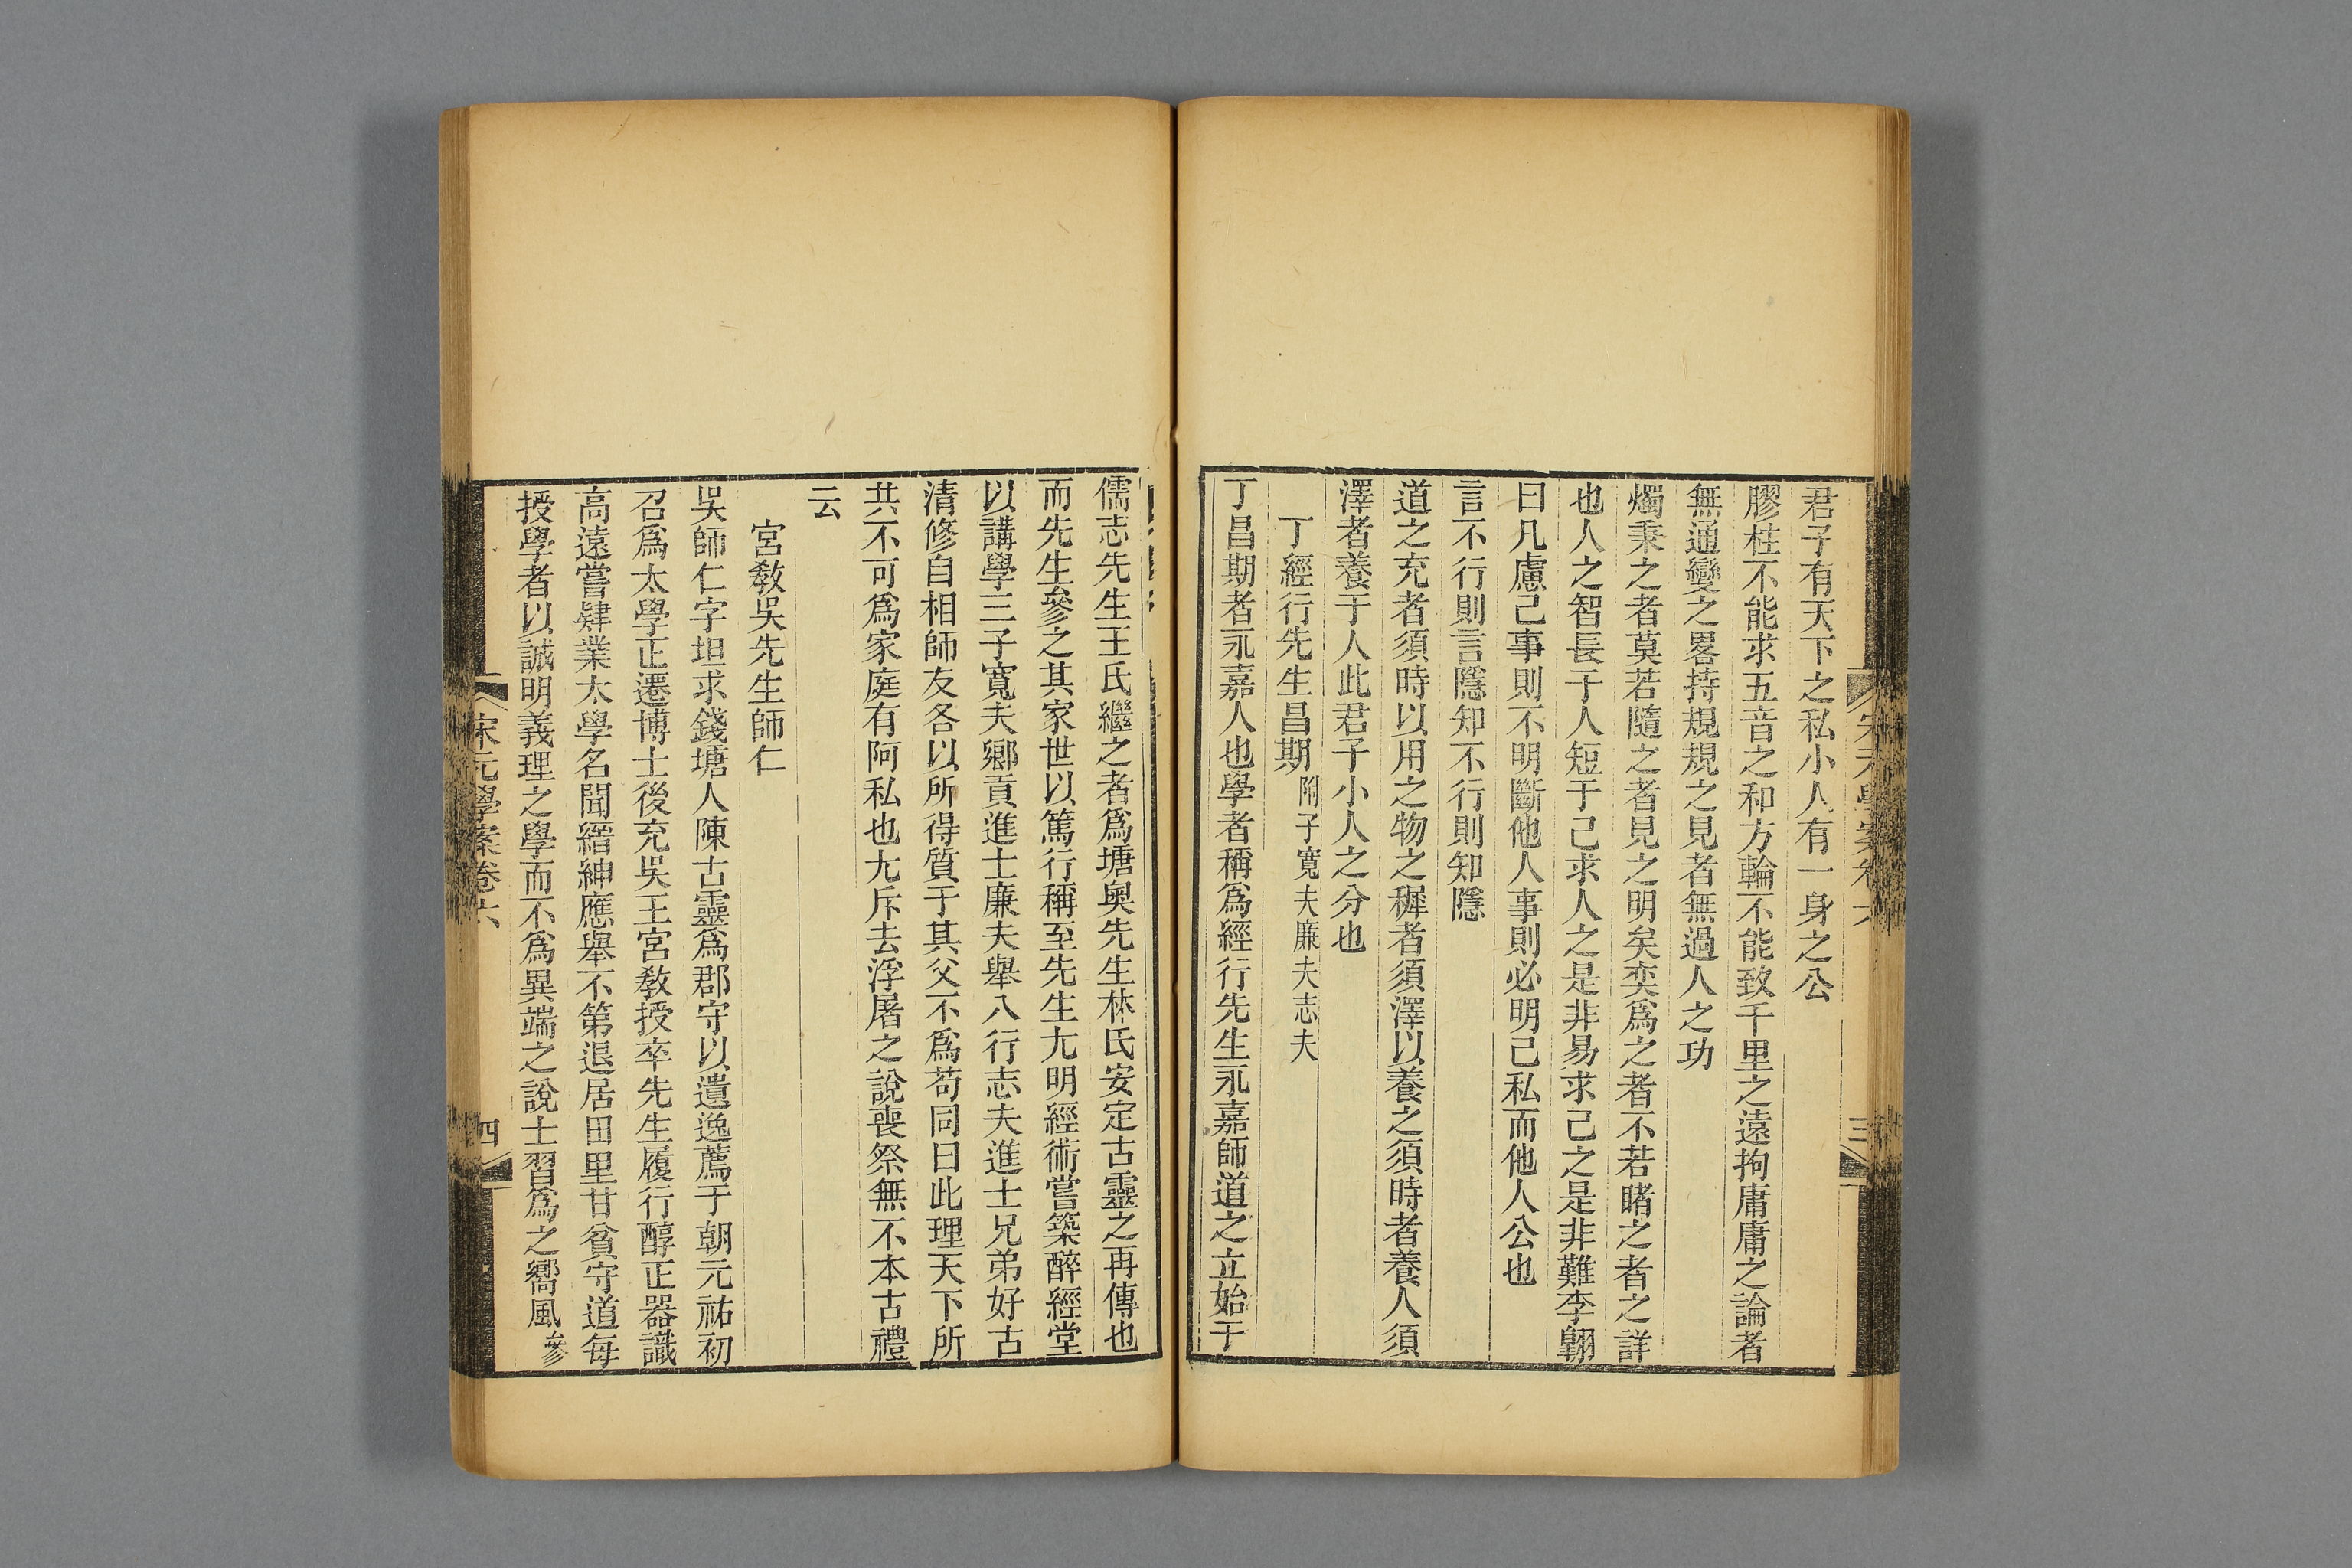 君子有天下之私小人有一身之公
膠柱不能求五音之和方輪不能致千里之遠拘庸庸之論者
無通變之畧持規規之見者無過人之功
燭秉之者莫若隨之者見之明矣奕爲之者不若睹之者之詳
也人之智長于人短于己求人之是非易求己之是非難李翺
曰凡慮己事則不明斷他人事則必明己私而他人公也
言不行則言隱知不行則知隱
道之充者須時以用之物之穉者須澤以養之須時者養人須
澤者養于人此君子小人之分也
丁經行先生昌期附子寬夫廉夫志夫
丁昌期者永嘉人也學者稱爲經行先生永嘉師道之立始于
宋元學案卷六
三
儒志先生王氏繼之者爲塘奧先生林氏安定古靈之再傳也
而先生參之其家世以篤行稱至先生尢明經術嘗築醉經堂
以講學三子寬夫鄉貢進士廉夫舉八行志夫進士兄弟好古
清修自相師友各以所得質于其父不爲苟同曰此理天下所
共不可爲家庭有阿私也尢斥去浮屠之說喪祭無不本古禮
云
宮敎吳先生師仁
吳師仁字坦求錢塘人陳古靈爲郡守以遺逸薦于朝元祐初
召爲太學正遷博士後充吳王宮敎授卒先生履行醇正器識
高遠嘗肄業太學名聞縉紳應舉不第退居田里甘貧守道每
授學者以誠明義理之學而不爲異端之說士習爲之嚮風參
宋元學案卷六
四